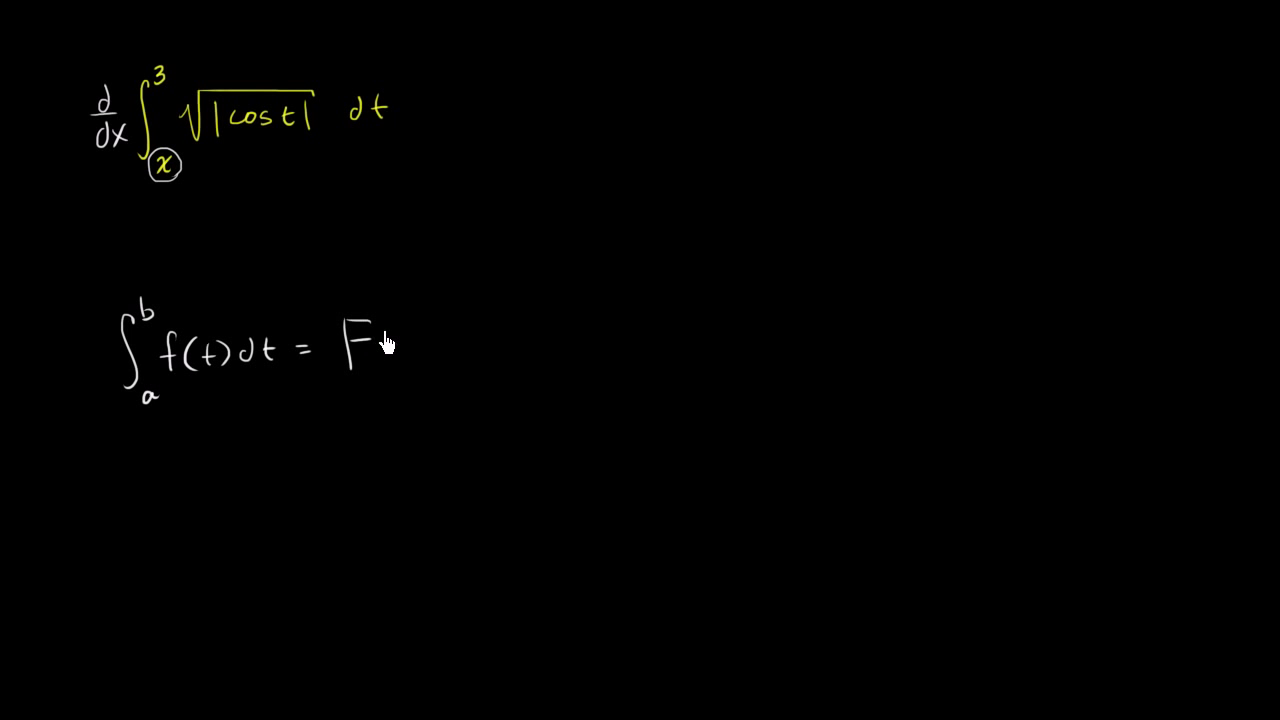 d/dx ∫_x^3 √|cos t| dt
∫_a^b f(t)dt = F